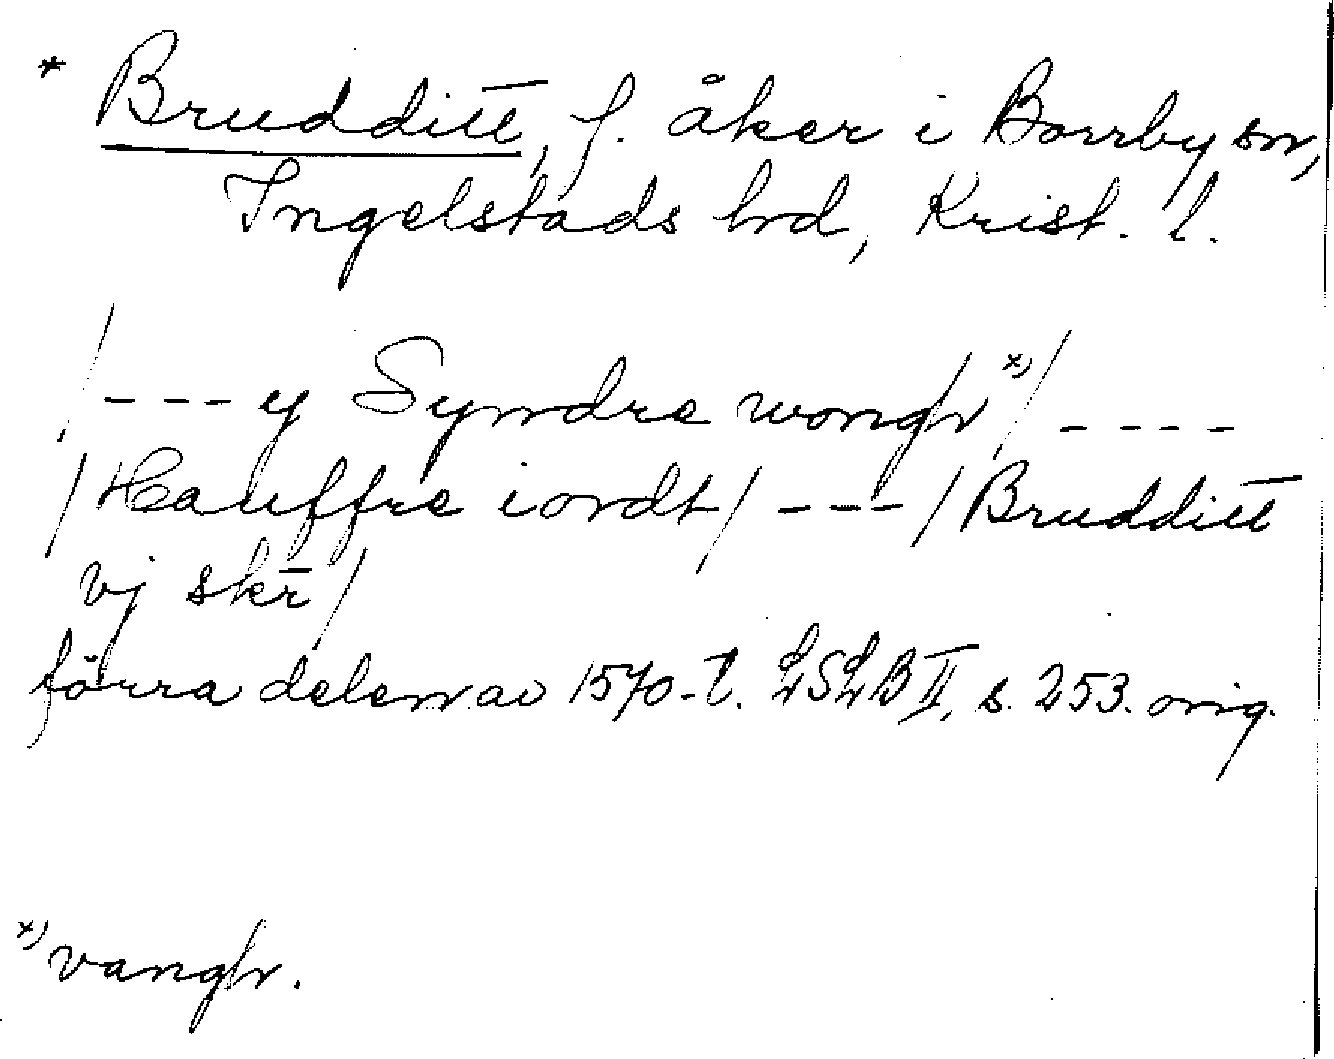 * Bruditt, f. åker i Borrby sn,
Ingelstads hd, Krist. l.
/---y Syndre wongh x)/ ----
/Hauffre iordt/ ---/Brudditt
vj skr̄/
förra delen av 1570-t. LSLB II, s. 253. orig.
x) vangh.